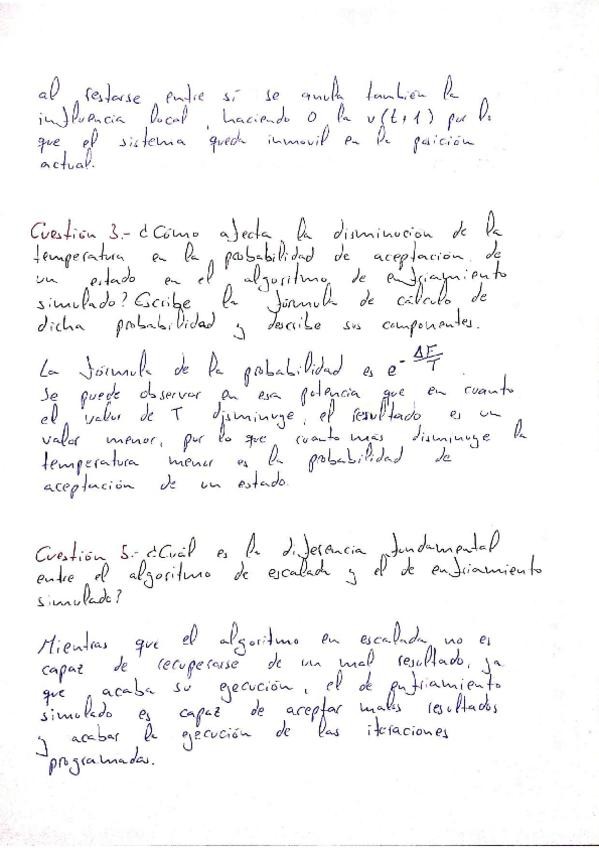 al restarse entre sí se anula también la
influencia local, haciendo 0 la v(t+1) por lo
que el sistema queda inmovil en la posición
actual.
Cuestión 3.- ¿Cómo afecta la disminucion de la
temperatura en la probabilidad de aceptación de
un estado en el algoritmo de enfriamiento
simulado? Escribe la fórmula de cálculo de
dicha probabilidad y describe sus componentes.
La fórmula de la probabilidad es e^-ΔE/T.
Se puede observar en esa potencia que en cuanto
el valor de T disminuye, el resultado es un
valor menor, por lo que cuanto más disminuye la
temperatura menor es la probabilidad de
aceptación de un estado.
Cuestión 5.- ¿Cuál es la diferencia fundamental
entre el algoritmo de escalada y el de enfriamiento
simulado?
Mientras que el algoritmo en escalada no es
capaz de recuperarse de un mal resultado, ya
que acaba su ejecución, el de enfriamiento
simulado es capaz de aceptar malos resultados
y acabar la ejecución de las iteraciones
programadas.